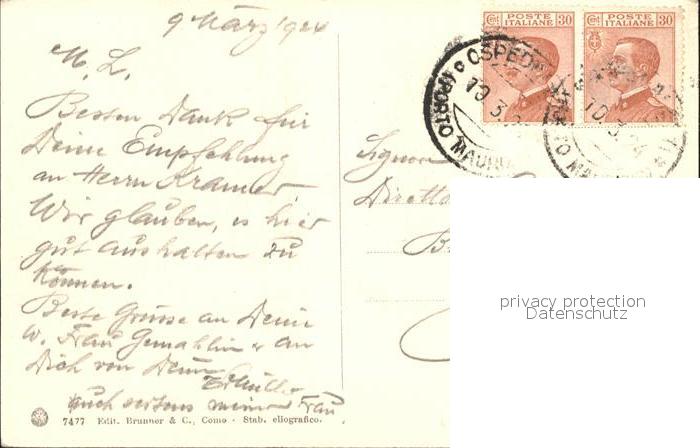 9 März 1924
M. L.
Besten Dank für
Deine Empfehlung
an Herrn Kramer.
Wir glauben, es hier
gut aushalten zu
können.
Beste Grüsse an Deine
w. Frau Gemahlin & an
Dich von Deinem
auch seitens meiner Frau
7477 Edit. Brunner & C., Como - Stab. eliografico.
Cent. POSTE ITALIANE 30
Cent. POSTE ITALIANE 30
OSPEDA
(PORTO MAURI
10.3.24
10.3.24
Signor
Diretto
privacy protection
Datenschutz